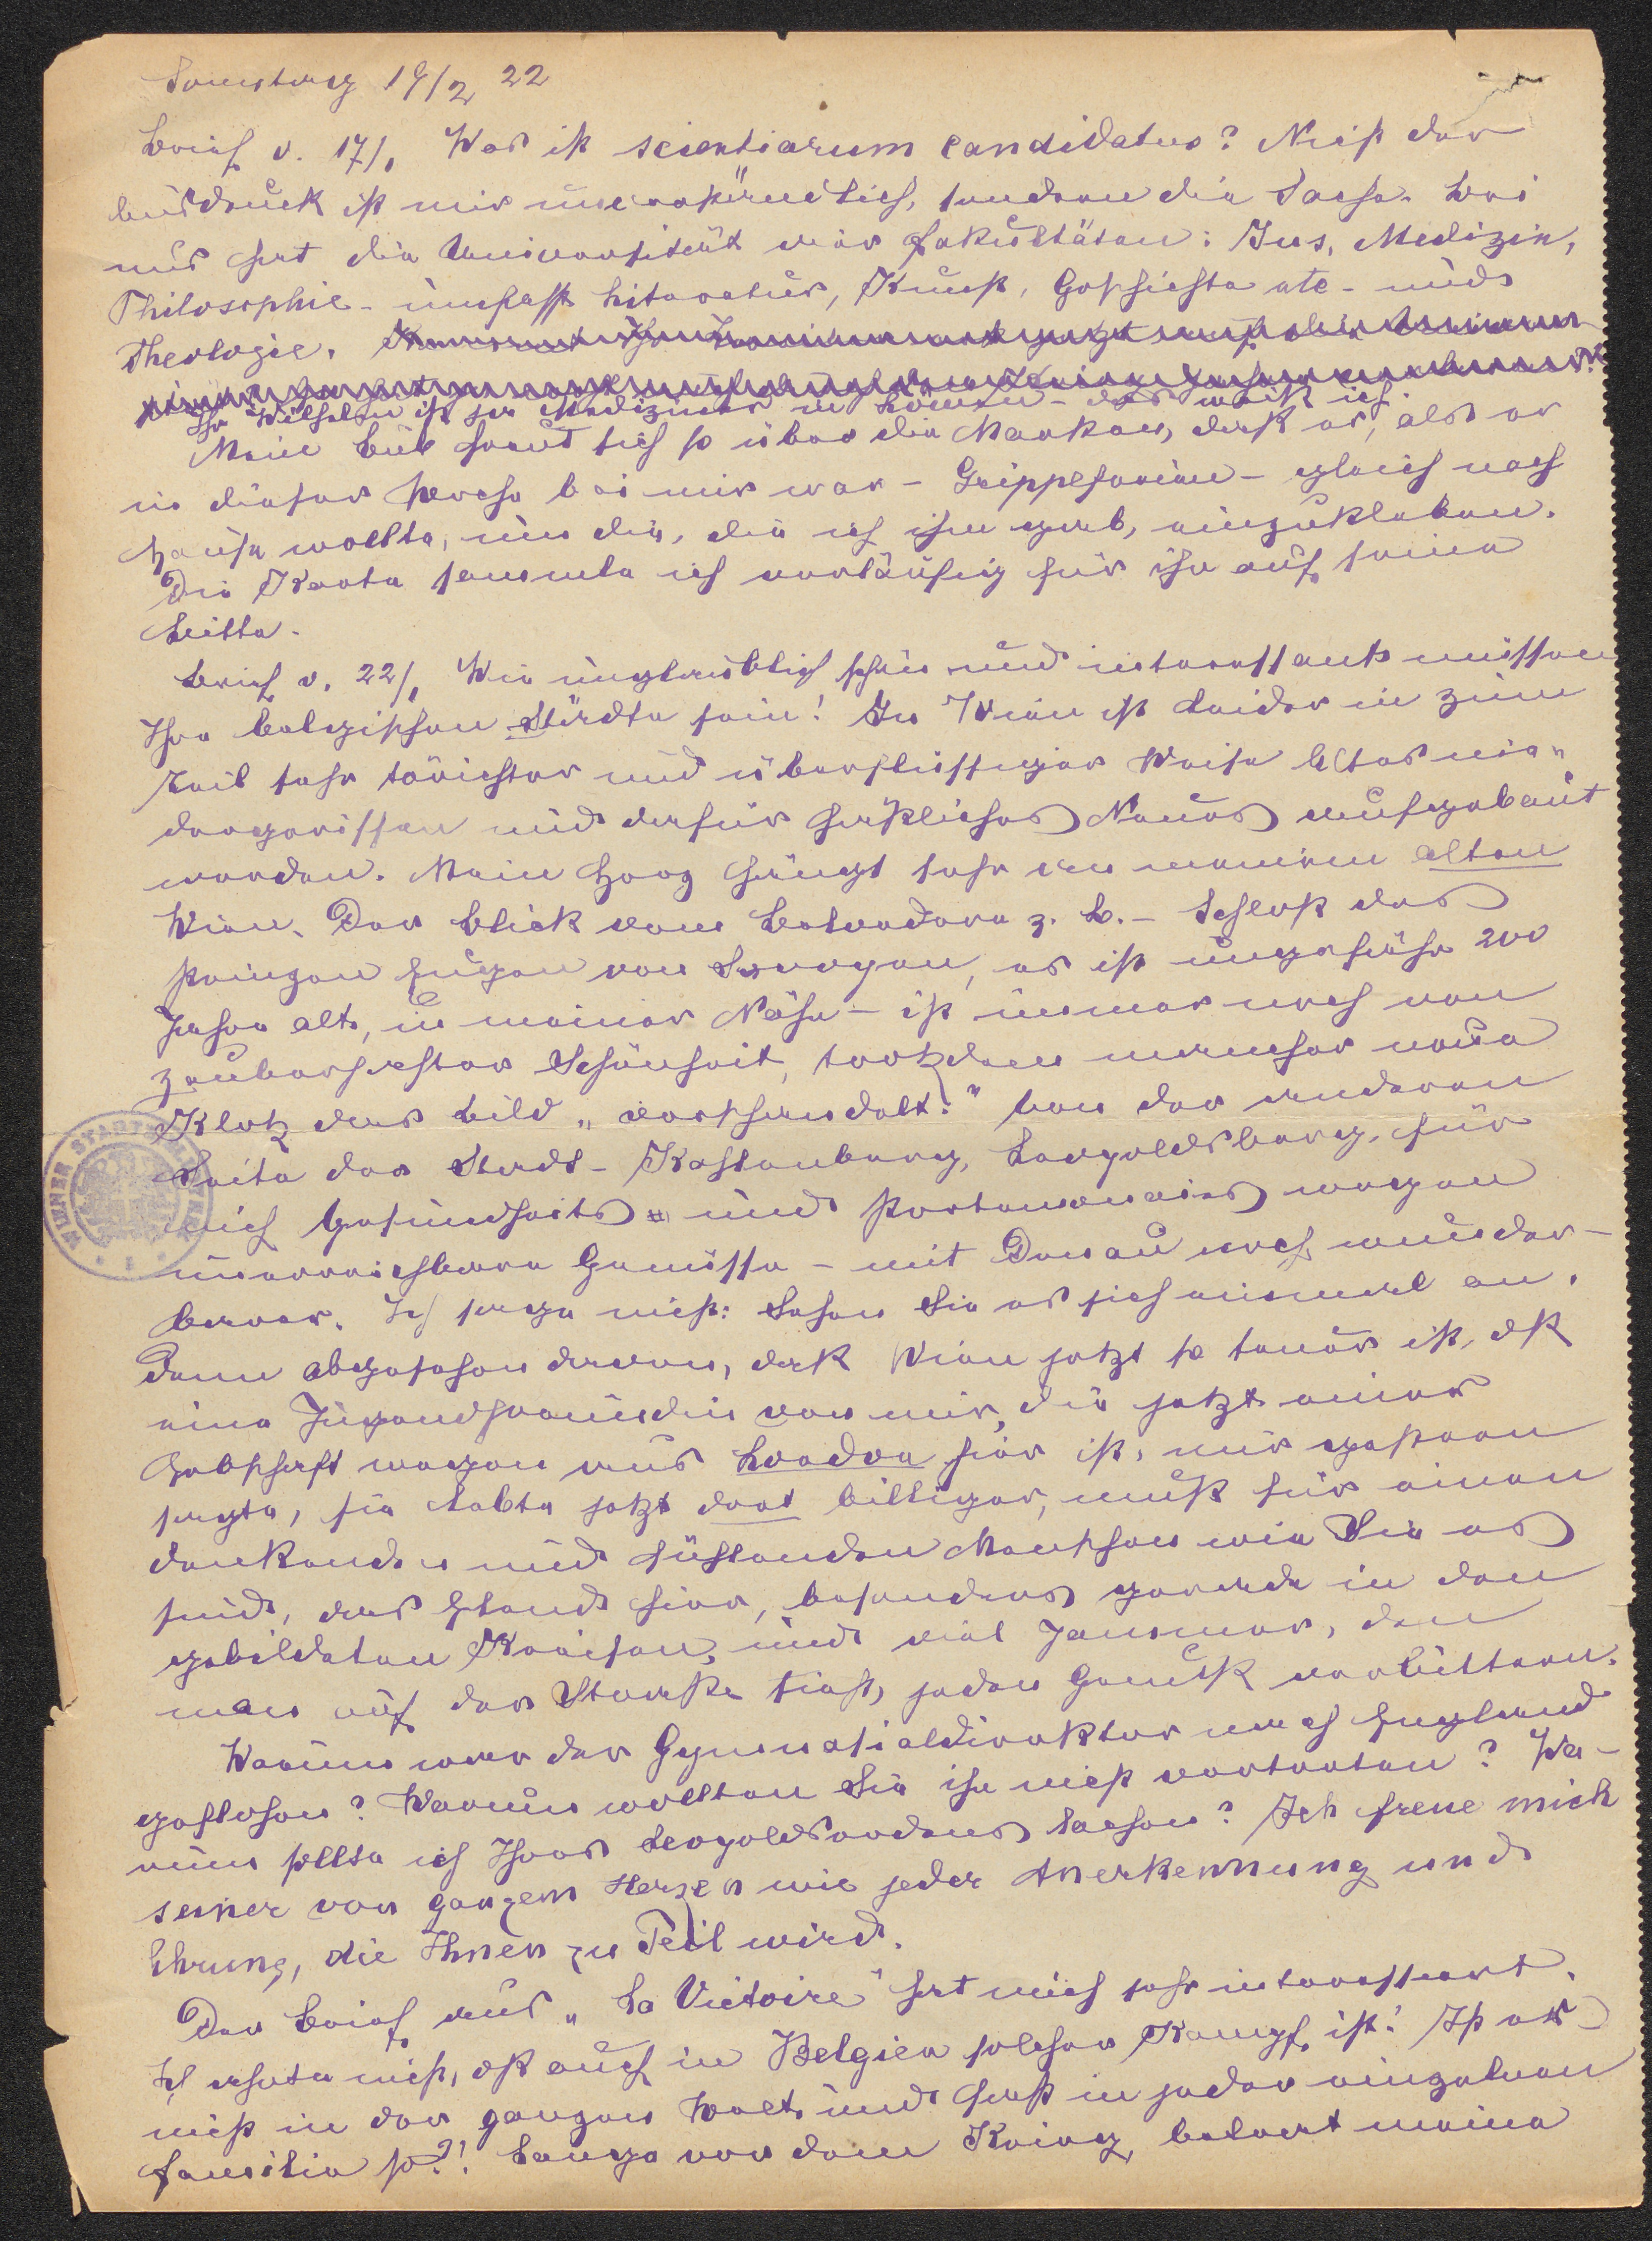 Samstag 19/2 22
Brief v. 17/1 Was ist scientiarum candidatus? Nicht der
Ausdruck ist mir unverständlich, sondern die Sache. Bei
uns hat die Universität vier Fakultäten: Jus, Medizin,
Philosophie - umfasst Literatur, Kunst, Geschichte etc - und
Theologie.
Ihr Wilhelm ist ja Mediziner in Löwen - das weiß ich.
Mein Bub freut sich so über die Marken, daß er, als er
in dieser Woche bei mir war - Grippeferien - gleich nach
Hause wollte, um die, die ich ihm gab, einzukleben.
Die Karte sammle ich vorläufig für ihn auf seine
Bitte.
Brief v. 22/1 Wie unglaublich schön und interessant müssen
Ihre belgischen Städte sein! In Wien ist leider in zum
Teil sehr törichter und überflüssiger Weise Altes nie-
dergerissen und dafür häßliches Neues aufgebaut
worden. Mein Herz hängt sehr an meinem alten
Wien. Der Blick vom Belvedere z. B. - Schloß des
Prinzen Eugen von Savoyen, es ist ungefähr 200
Jahre alt, in meiner Nähe - ist immer noch von
zauberhafter Schönheit, trotzdem mancher neue
Klotz das Bild „verschandelt." Von der anderen
Seite der Stadt - Kahlenberg, Leopoldsberg, für
mich Gesundheits - und Portemonnaies wegen
unerreichbare Genüsse - mit Donau noch wunder-
barer. Ich sage nicht: Sehen Sie es sich einmal an.
Denn abgesehen davon, daß Wien jetzt so teuer ist, daß
eine Jugendfreundin von mir, die jetzt einer
Erbschaft wegen aus London hier ist, mir gestern
sagte, sie lebte jetzt dort billiger, muß für einen
denkenden und fühlenden Menschen wie Sie es
sind, das Elend hier, besonders gerade in den
gebildeten Kreisen, und viel Jammer, den
man auf der Straße sieht, jeden Genuß verbittern.
Warum war der Gymnasialdirektor nach England
geflohen? Warum wollten Sie ihn nicht vertreten? Wa-
rum sollte ich Ihres Leopoldsordens lachen? Ich freue mich
seiner von ganzem Herzen wie jeder Anerkennung und
Ehrung, die Ihnen zu Teil wird.
Der Brief aus „La Victoire" hat mich sehr interessiert.
Ich ahnte nicht, daß auch in Belgien solcher Kampf ist! Ist es
nicht in der ganzen Welt und fast in jeder einzelnen
Familie so?! Lange vor dem Krieg, belegt meine
WIENER STADT